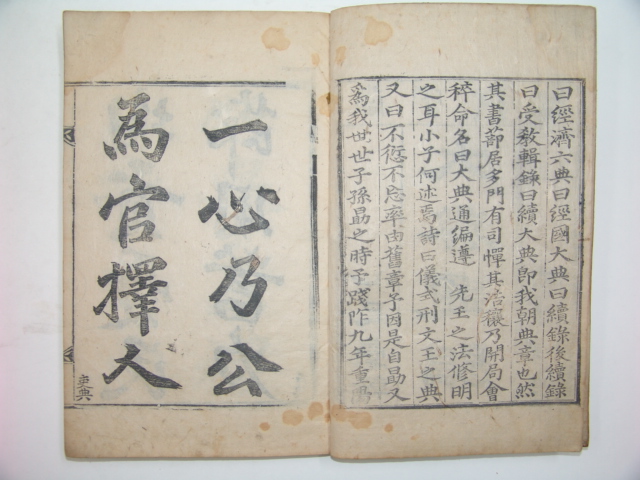 曰經濟六典曰經國大典曰續錄後續錄
曰受敎輯錄曰續大典卽我朝典章也然
其書蔀居多門有司憚其浩穰乃開局會
稡命名曰大典通編遵 先王之法修明
之耳小子何述焉詩曰儀式刑文王之典
又曰不愆不忘率由舊章予因是自勗又
爲我世世子孫勗之時予踐阼九年重
一心乃公
為官擇人
吏典